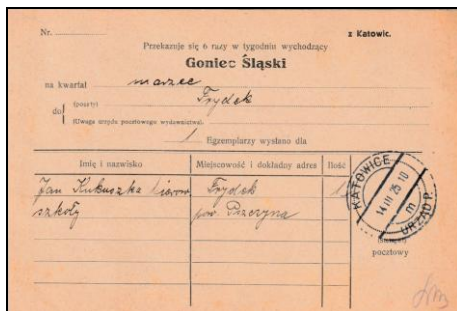 Nr. z Katowic.
Przekazuje się 6 razy w tygodniu wychodzący
Goniec Śląski
na kwartał marzec
do (poczty) Frydek
(Uwaga urzędu pocztowego wydawnictwa).
1 Egzemplarzy wysłano dla
Imię i nazwisko Miejscowość i dokładny adres Ilość
Jan Kukuszka kierow. Frydek 1
szkoły pow. Pszczyna
KATOWICE
14 III 25 10
m
URZĄD P.
pocztowy